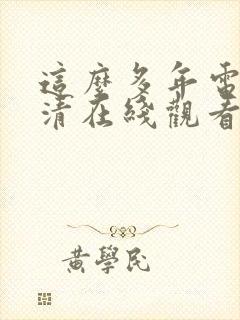 這麼多年電
清在綫觀看
黃學民